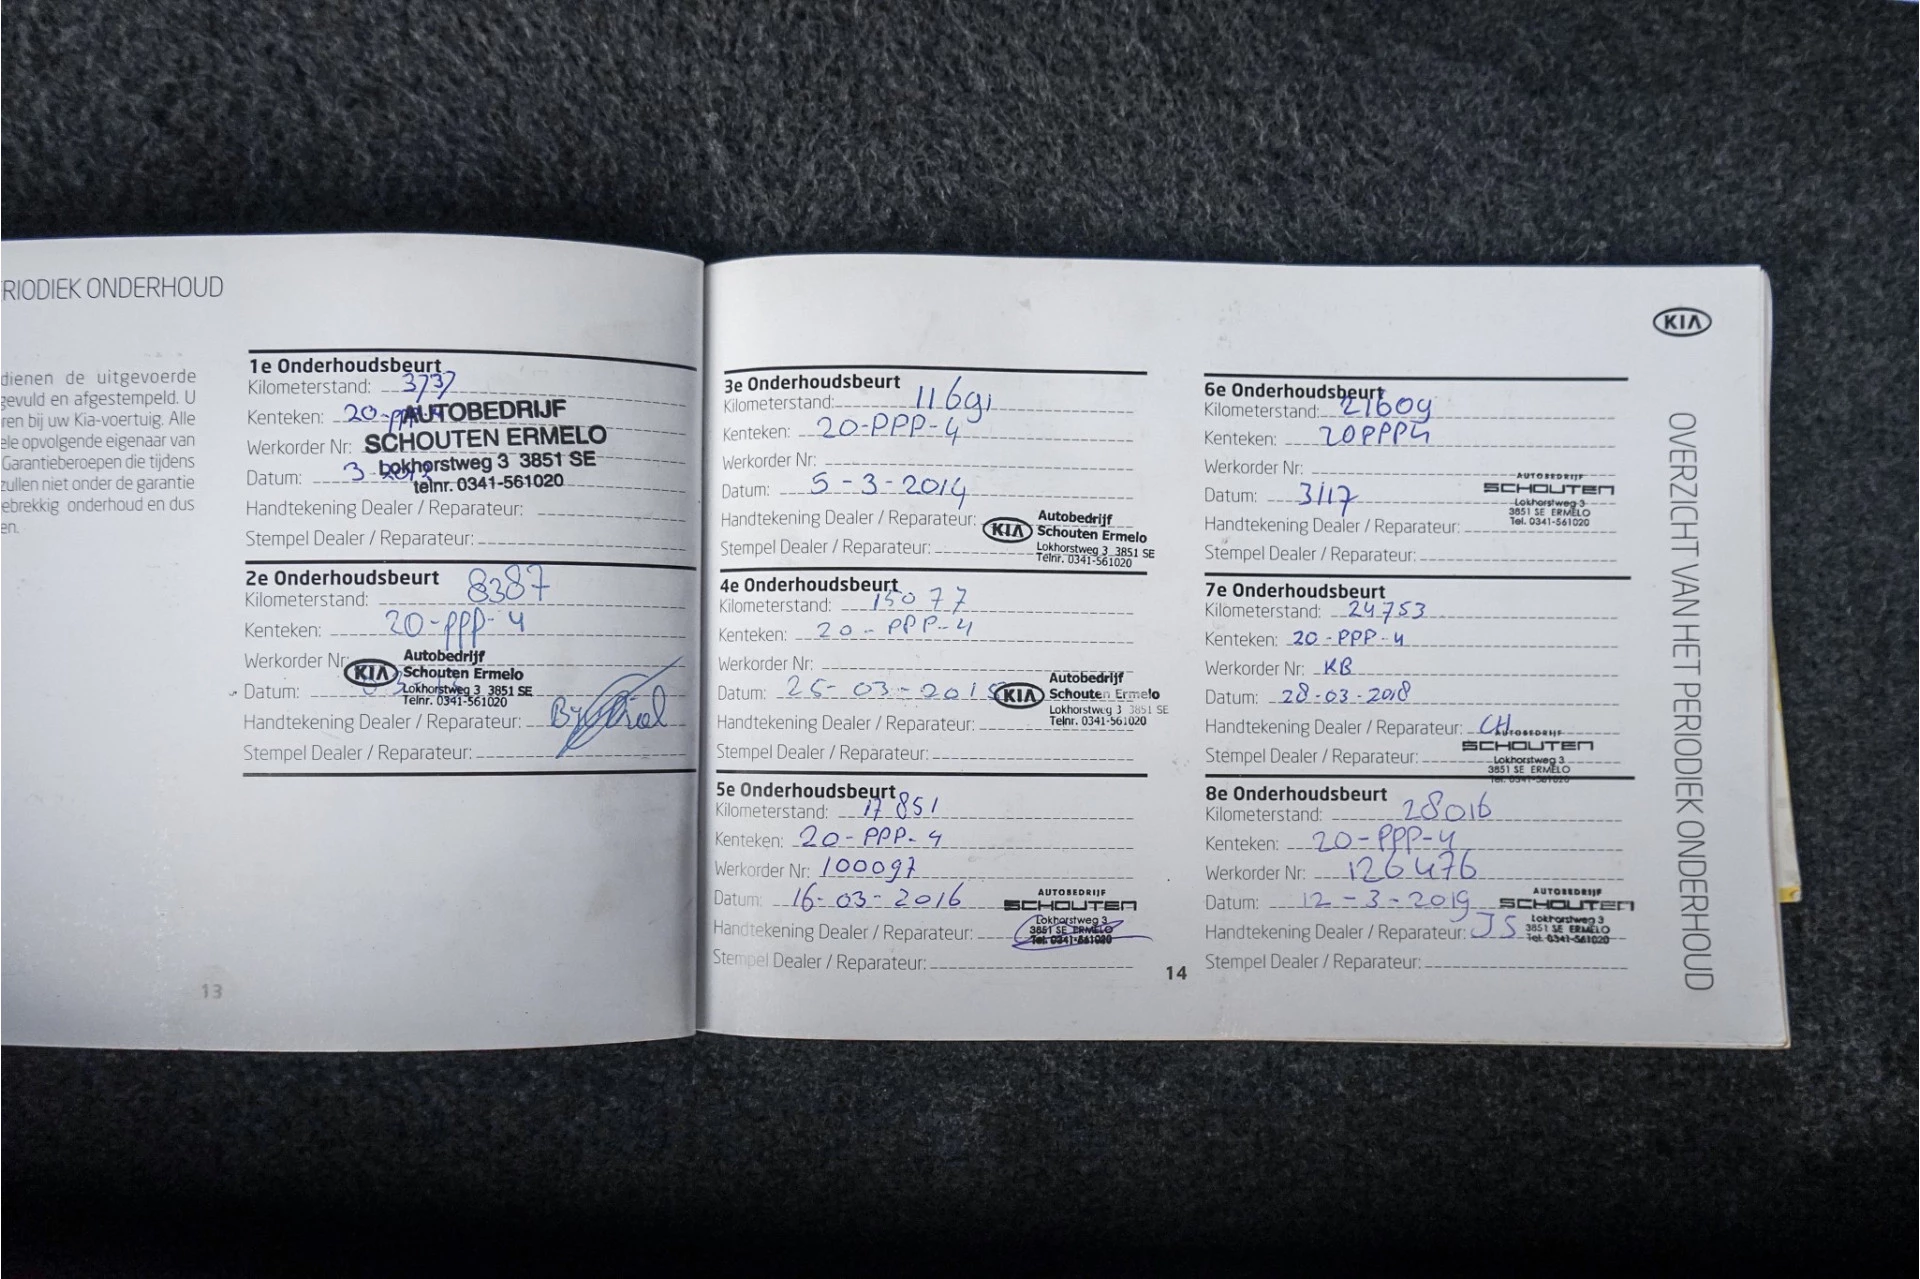 RIODIEK ONDERHOUD
dienen de uitgevoerde
gevuld en afgestempeld. U
ren bij uw Kia-voertuig. Alle
ele opvolgende eigenaar van
Garantieberoepen die tijdens
zullen niet onder de garantie
ebrekkig onderhoud en dus
en.
1e Onderhoudsbeurt
Kilometerstand: 3737
Kenteken: 20-PPP-4
AUTOBEDRIJF
Werkorder Nr:
SCHOUTEN ERMELO
Lokhorstweg 3 3851 SE
Datum: 3-2013
telnr. 0341-561020
Handtekening Dealer / Reparateur:
Stempel Dealer / Reparateur:
2e Onderhoudsbeurt
Kilometerstand: 8387
Kenteken: 20-PPP-4
Werkorder Nr:
KIA
Autobedrijf
Schouten Ermelo
Lokhorstweg 3 3851 SE
Telnr. 0341-561020
Datum:
Handtekening Dealer / Reparateur:
Stempel Dealer / Reparateur:
13
3e Onderhoudsbeurt
Kilometerstand: 11691
Kenteken: 20-PPP-4
Werkorder Nr:
Datum: 5-3-2014
Handtekening Dealer / Reparateur:
KIA
Autobedrijf
Schouten Ermelo
Lokhorstweg 3 3851 SE
Telnr. 0341-561020
Stempel Dealer / Reparateur:
4e Onderhoudsbeurt
Kilometerstand: 15077
Kenteken: 20-PPP-4
Werkorder Nr:
Datum: 25-03-2015
KIA
Autobedrijf
Schouten Ermelo
Lokhorstweg 3 3851 SE
Telnr. 0341-561020
Handtekening Dealer / Reparateur:
Stempel Dealer / Reparateur:
5e Onderhoudsbeurt
Kilometerstand: 17851
Kenteken: 20-PPP-4
Werkorder Nr: 100097
Datum: 16-03-2016
AUTOBEDRIJF
SCHOUTEN
Lokhorstweg 3
3851 SE ERMELO
Tel. 0341-561020
Handtekening Dealer / Reparateur:
Stempel Dealer / Reparateur:
14
KIA
6e Onderhoudsbeurt
Kilometerstand: 21609
Kenteken: 20PPP4
Werkorder Nr:
Datum: 3/17
AUTOBEDRIJF
SCHOUTEN
Lokhorstweg 3
3851 SE ERMELO
Tel. 0341-561020
Handtekening Dealer / Reparateur:
Stempel Dealer / Reparateur:
7e Onderhoudsbeurt
Kilometerstand: 24753
Kenteken: 20-PPP-4
Werkorder Nr: KB
Datum: 28-03-2018
Handtekening Dealer / Reparateur: CH
AUTOBEDRIJF
SCHOUTEN
Lokhorstweg 3
3851 SE ERMELO
Tel. 0341-561020
Stempel Dealer / Reparateur:
8e Onderhoudsbeurt
Kilometerstand: 28016
Kenteken: 20-PPP-4
Werkorder Nr: 126476
Datum: 12-3-2019
AUTOBEDRIJF
SCHOUTEN
Lokhorstweg 3
3851 SE ERMELO
Tel. 0341-561020
Handtekening Dealer / Reparateur: JS
Stempel Dealer / Reparateur:
OVERZICHT VAN HET PERIODIEK ONDERHOUD